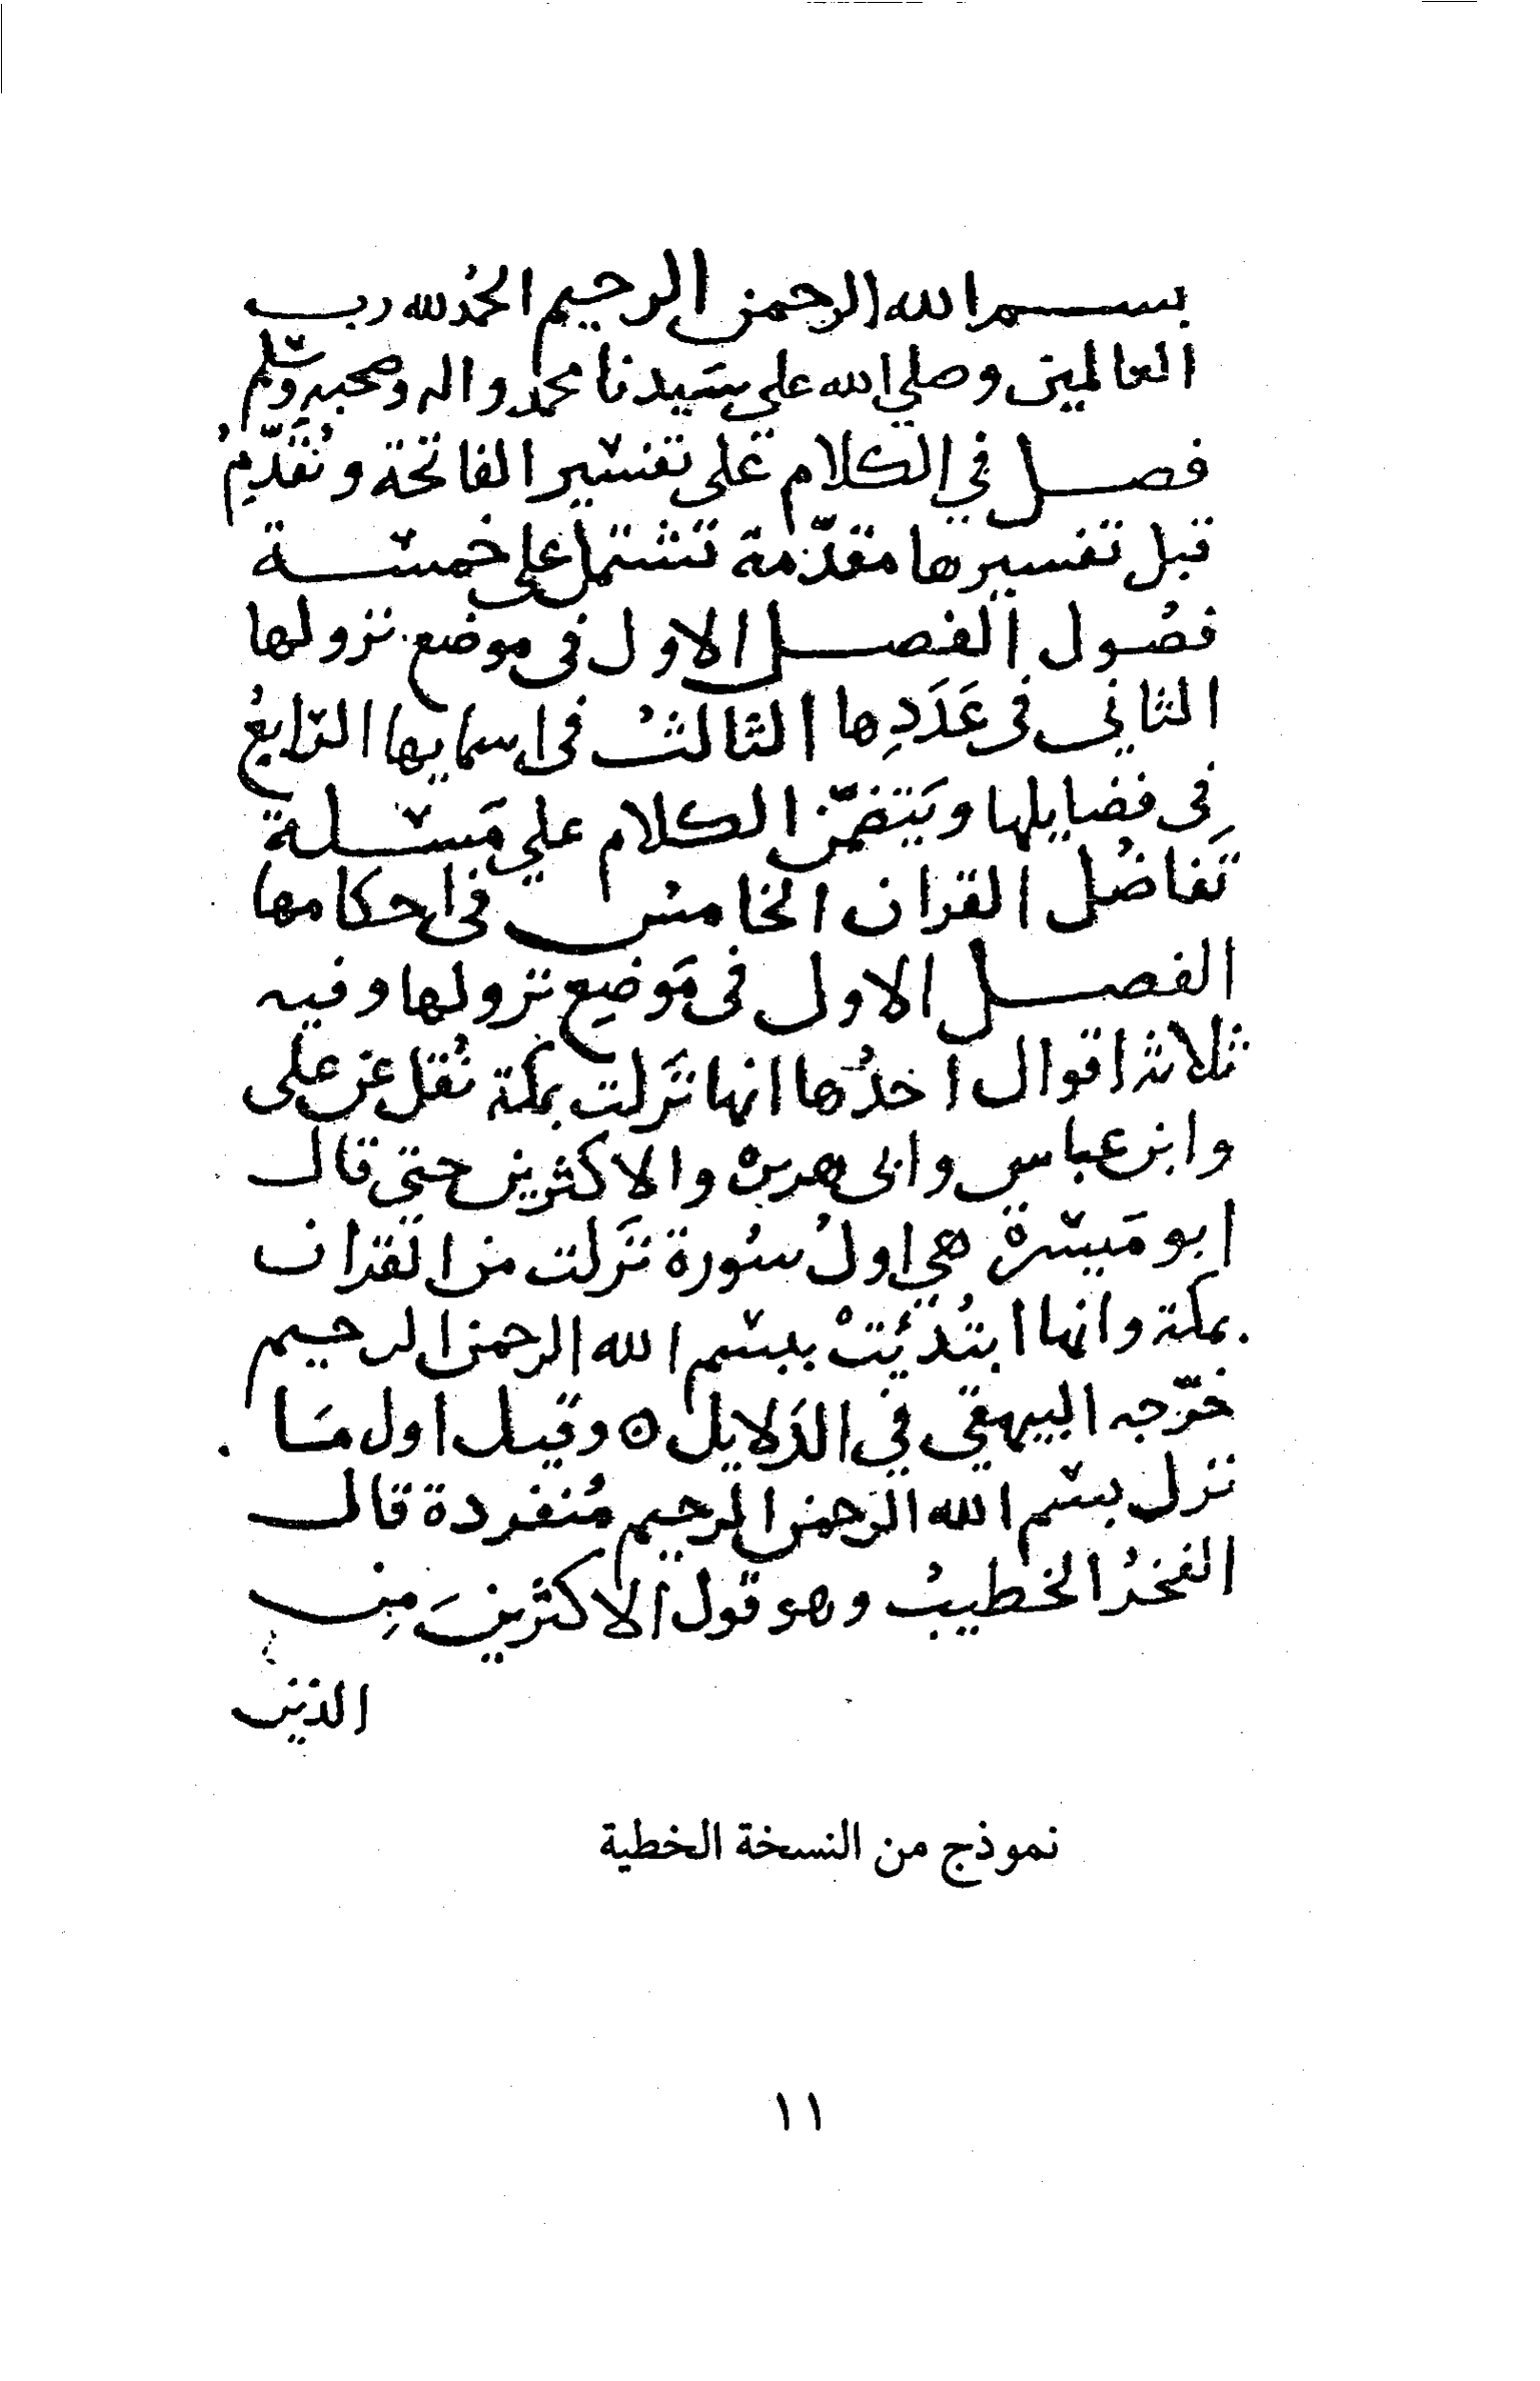 بسم الله الرحمن الرحيم الحمد لله رب
العالمين وصلي الله علي سيدنا محمد واله وصحبه وسلم
فصل في الكلام على تفسير الفاتحة ونُقَدِّمُ
قبل تفسيرها مقدّمة تشتمل على خمسة
فصُول الفصل الاول فى موضع نزولها
الثاني فى عَدَدِها الثالثُ فى اسمايها الرّابعُ
فِي فضايلها ويَتضمّن الكلام علي مَسْلة
تَفاضُل القران الخامس فى احكامها
الفصل الاول فى مَوضع نزولها وفيه
ثلاثة اقوال احدُها انها نَزلت بمكة نُقل عن على
وابن عباس وابى هريره والاكثرين حتى قال
ابو مَيسرة هي اولُ سُورة نَزلت من القران
بمكة وانها ابتُدِئَتْ ببسم الله الرحمن الرحيم
خرّجه البيهقي في الدَلايل ۞ وقيل اول مَا
نزل بسم الله الرحمن الرحيم مُنفردة قال
الفخرُ الخطيبُ وهو قول الاكثرينَ مِن
الذين
نموذج من النسخة الخطية
١١